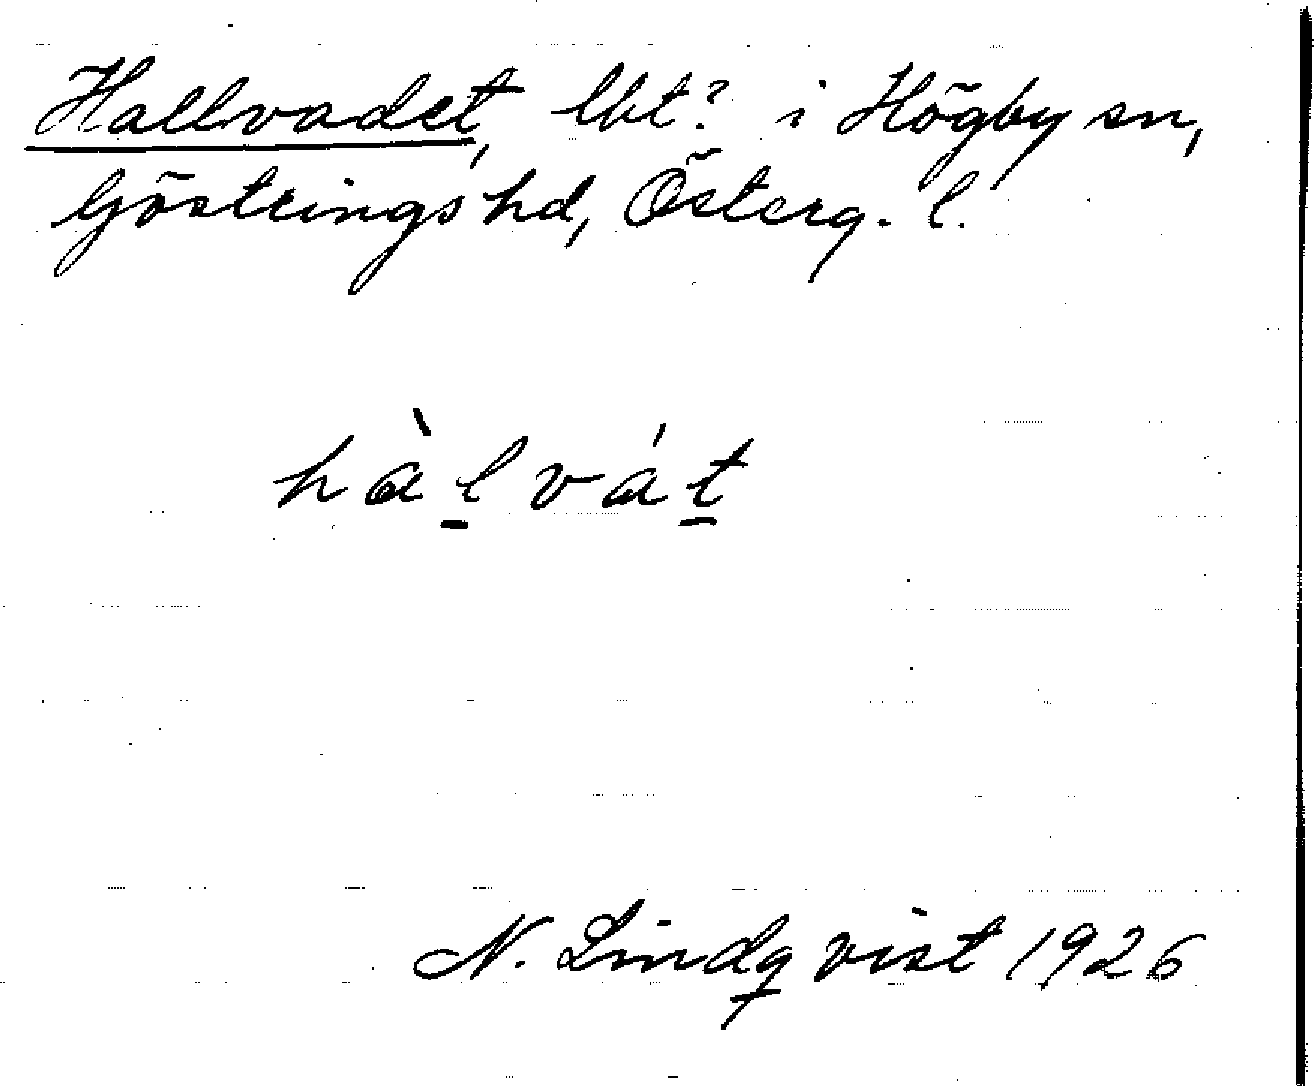 Hallvadet, lbt? i Högby sn,
Göstrings hd, Österg. l.
hàl̲vát̲
N. Lindqvist 1926